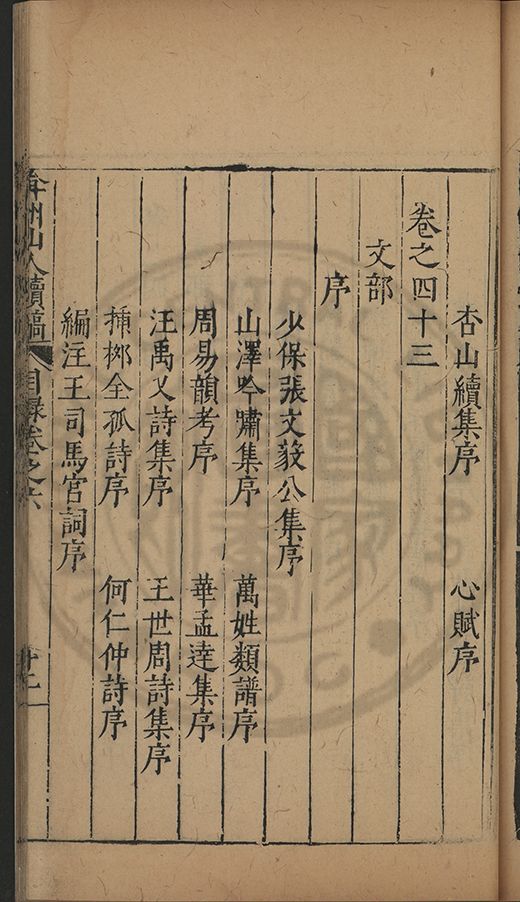 杏山續集序 心賦序
卷之四十三
文部
序
少保張文毅公集序
山澤吟嘯集序 萬姓類譜序
周易韻考序 華孟達集序
汪禹乂詩集序 王世周詩集序
挿椰全孤詩序 何仁仲詩序
編注王司馬宮詞序
弇州山人續稿 目録卷之六 十二